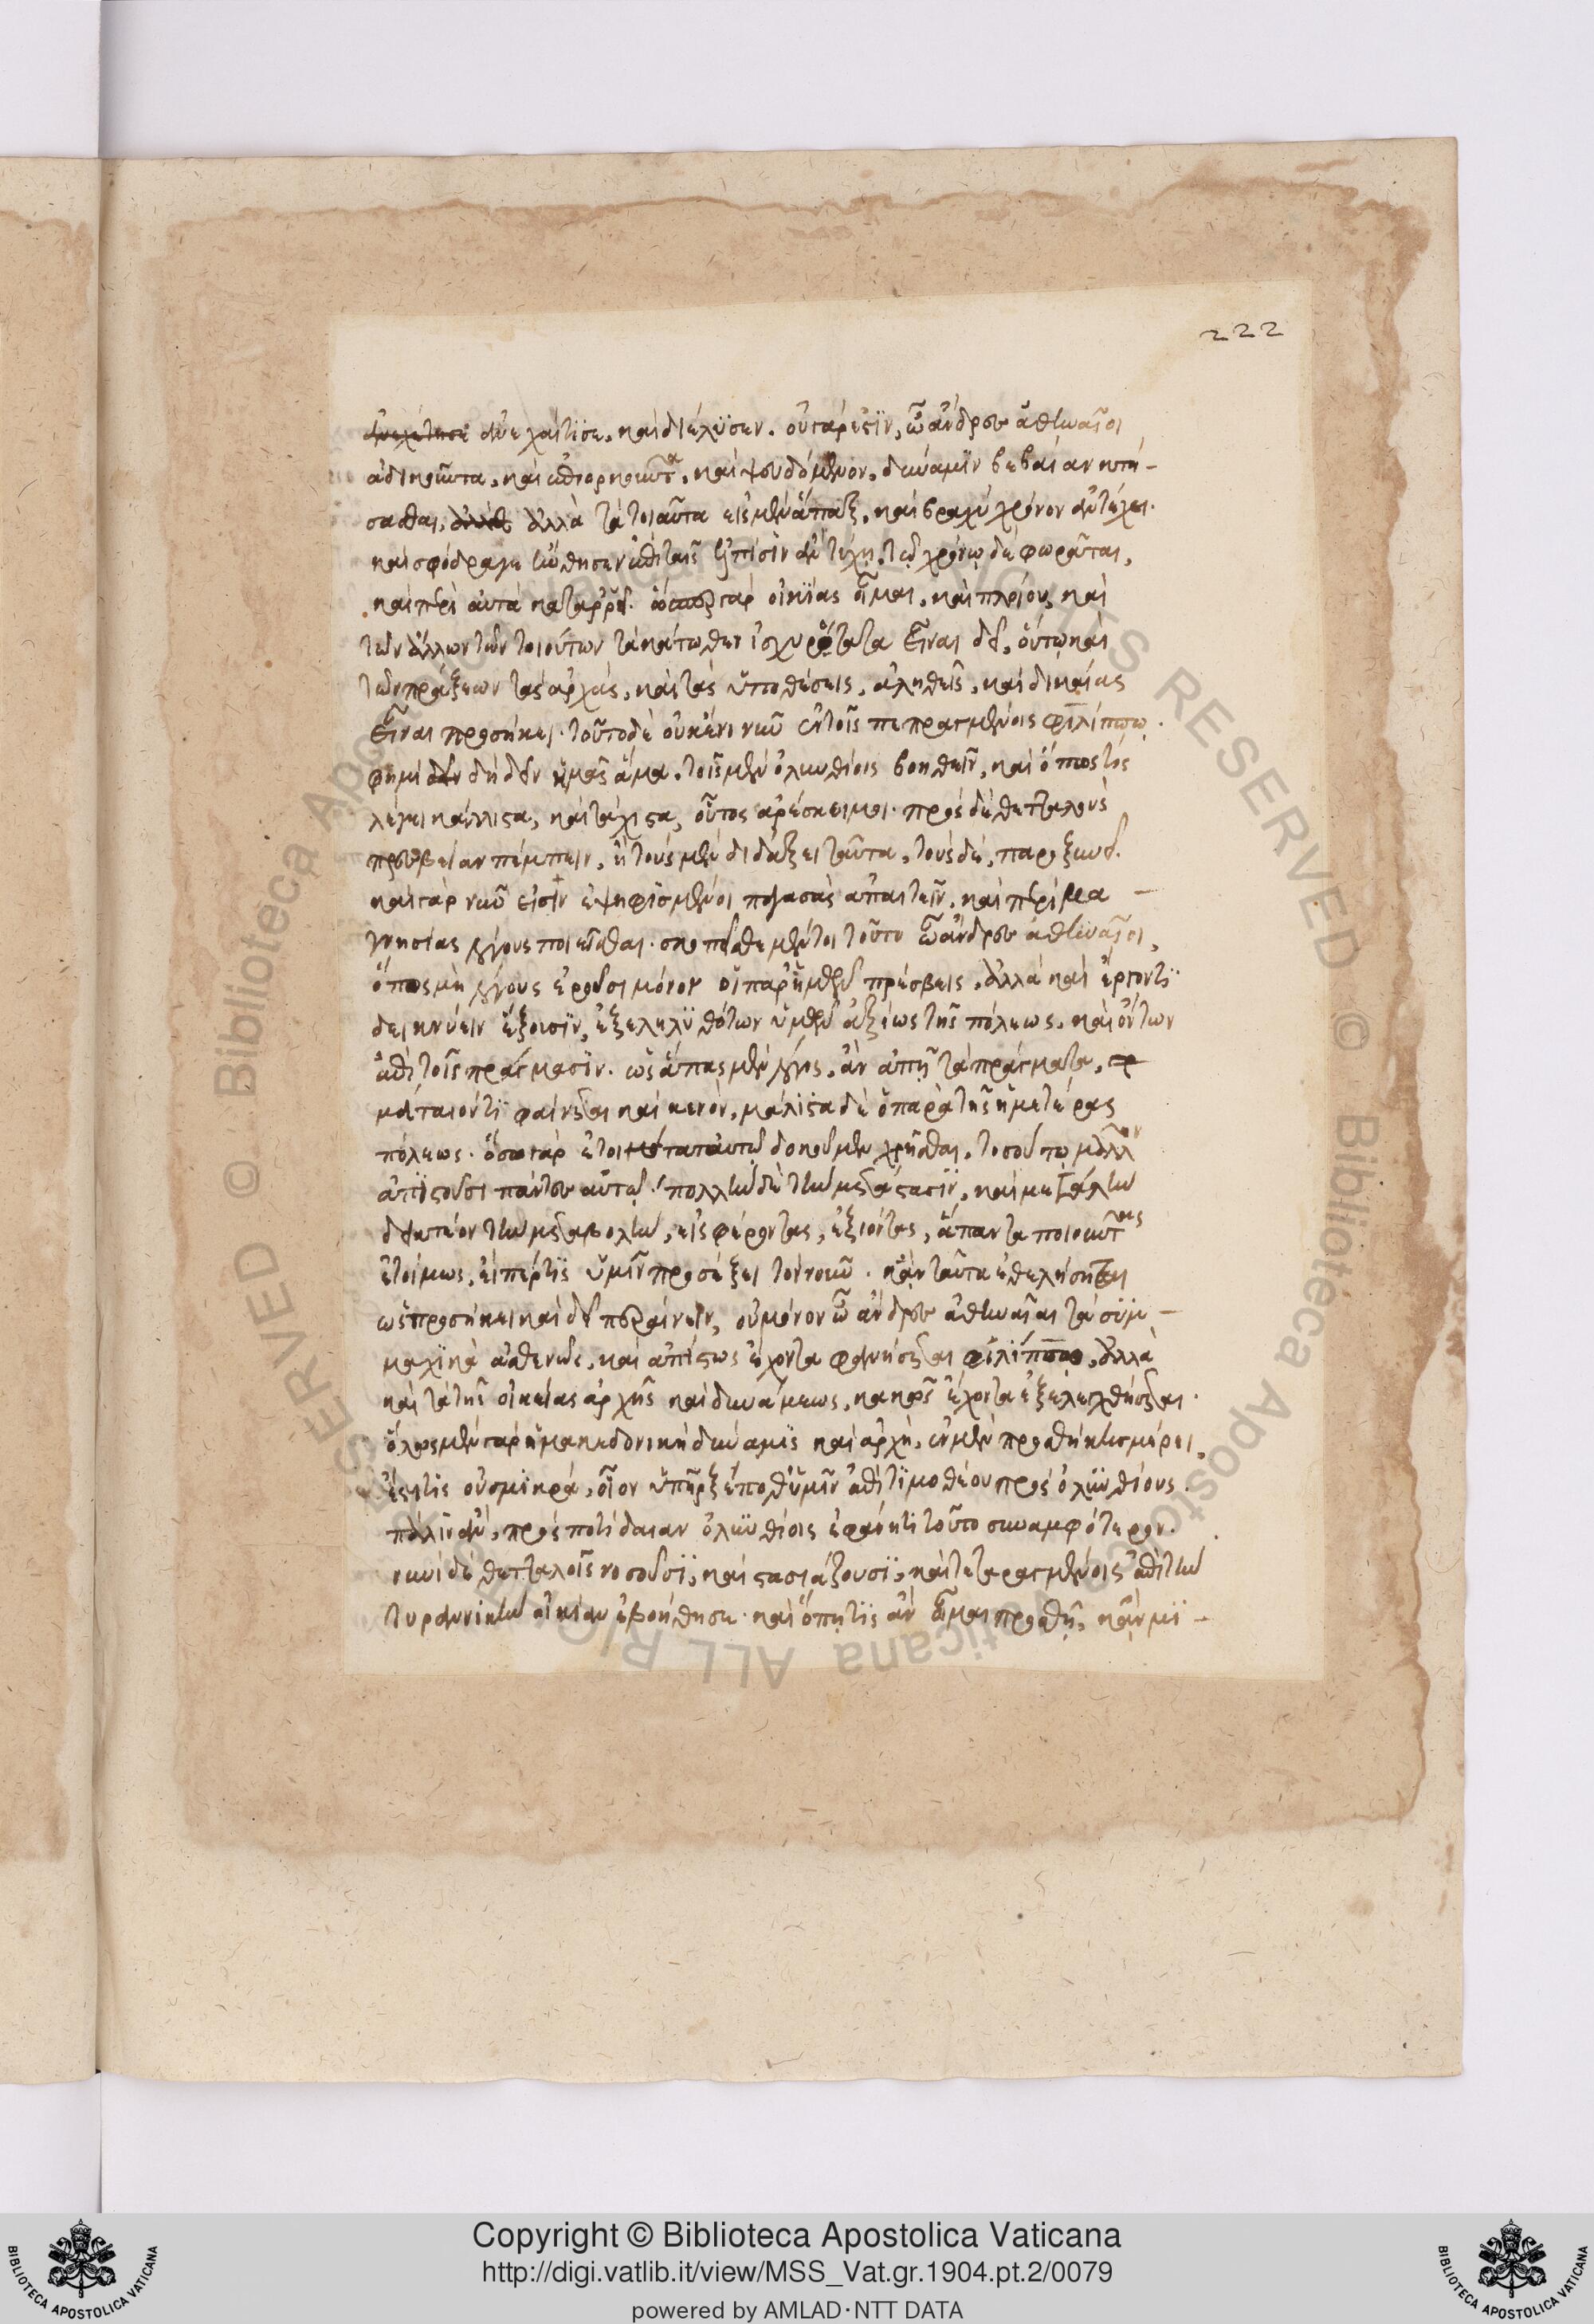 222
ἀνεχαίτισε, καὶ διέλυσεν. οὐ γάρ ἐστιν, ὦ ἄνδρες ἀθηναῖοι
ἀδικοῦντα, καὶ ἐπιορκοῦντα, καὶ ψευδόμενον, δύναμιν βεβαίαν κτή-
σασθαι, ἀλλὰ τὰ τοιαῦτα εἰς μὲν ἅπαξ, καὶ βραχὺν χρόνον ἀντέχει.
καὶ σφόδρα γε ἤνθησεν ἐπὶ ταῖς ἐλπίσιν ἂν τύχη, τῷ χρόνῳ δὲ φωρᾶται,
καὶ περὶ αὐτὰ καταρρεῖ. ὥσπερ γὰρ οἰκίας οἶμαι, καὶ πλοίου καὶ
τῶν ἄλλων τῶν τοιούτων τὰ κάτωθεν ἰσχυρότατα εἶναι δεῖ, οὕτω καὶ
τῶν πράξεων τὰς ἀρχὰς, καὶ τὰς ὑποθέσεις, ἀληθεῖς, καὶ δικαίας
εἶναι προσήκει. τοῦτο δὲ οὐκ ἔνι νῦν ἐν τοῖς πεπραγμένοις φιλίππῳ.
φημὶ δὴ δεῖν ἡμᾶς ἅμα, τοῖς μὲν ὀλυνθίοις βοηθεῖν, καὶ ὅπως τὶς
λέγει κάλλιστα, καὶ τάχιστα, οὕτως ἀρέσκει μοι. πρὸς δὲ θετταλοὺς
πρεσβείαν πέμπειν, ἣ τοὺς μὲν διδάξει ταῦτα, τοὺς δὲ, παροξυνεῖ.
καὶ γὰρ νῦν εἰσὶν ἐψηφισμένοι παγασὰς ἀπαιτεῖν, καὶ περὶ μα-
γνησίας λόγους ποιεῖσθαι. σκοπεῖσθε μέντοι τοῦτο ὦ ἄνδρες ἀθηναῖοι,
ὅπως μὴ λόγους ἐροῦσι μόνον οἱ παρ' ἡμῶν πρέσβεις, ἀλλὰ καὶ ἔργον τι
δεικνύειν ἕξουσιν, ἐξεληλυθότων ὑμῶν ἀξίως τῆς πόλεως, καὶ ὄντων
ἐπὶ τοῖς πράγμασιν. ὡς ἅπας μὲν λόγος, ἂν ἀπῇ τὰ πράγματα,
μάταιόν τι φαίνεται καὶ κενὸν, μάλιστα δὲ ὁ παρὰ τῆς ἡμετέρας
πόλεως. ὅσῳ γὰρ ἑτοιμότατ' αὐτῷ δοκοῦμεν χρῆσθαι, τοσούτῳ μᾶλλον
ἀπιστοῦσι πάντες αὐτῷ. πολλὴν δὲ τὴν μετάστασιν, καὶ μεγάλην
δεικτέον τὴν μεταβολὴν, εἰσφέροντας, ἐξιόντας, ἅπαντα ποιοῦντας
ἑτοίμως, εἴπερ τις ὑμῖν προσέξει τὸν νοῦν. κἂν ταῦτα ἐθελήσητε
ὡς προσήκει καὶ δεῖ περαίνειν, οὐ μόνον ὦ ἄνδρες ἀθηναῖοι τὰ συμ-
μαχικὰ ἀσθενῶς, καὶ ἀπίστως ἔχοντα φανήσεται φιλίππῳ, ἀλλὰ
καὶ τὰ τῆς οἰκείας ἀρχῆς καὶ δυνάμεως, κακῶς ἔχοντα ἐξελεγχθήσεται.
ὅλως μὲν γὰρ ἡ μακεδονικὴ δύναμις καὶ ἀρχὴ, ἐν μὲν προσθήκης μέρει,
ἐστί τις οὐ σμικρὰ, οἷον ὑπῆρξέ ποθ' ὑμῖν ἐπὶ τιμοθέου πρὸς ὀλυνθίους.
πάλιν αὖ, πρὸς ποτίδαιαν ὀλυνθίοις ἐφάνη τι τοῦτο συναμφότερον.
νυνὶ δὲ θετταλοῖς νοσοῦσι, καὶ στασιάζουσι, καὶ τεταραγμένοις ἐπὶ τὴν
τυραννικὴν οἰκίαν ἐβοήθησε. καὶ ὅπῃ τις ἂν οἶμαι προσθῇ, κἂν μι-
Copyright © Biblioteca Apostolica Vaticana
http://digi.vatlib.it/view/MSS_Vat.gr.1904.pt.2/0079
powered by AMLAD·NTT DATA
BIBLIOTECA APOSTOLICA VATICANA
BIBLIOTECA APOSTOLICA VATICANA